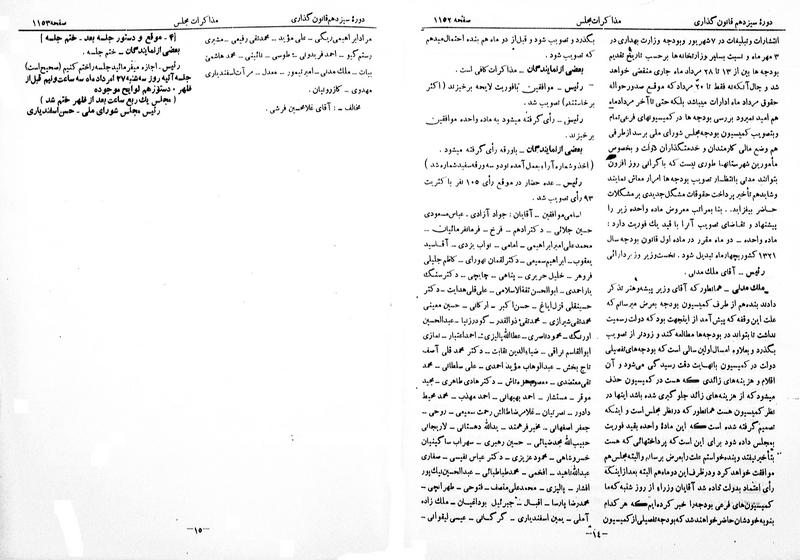 دورهٔ سیزدهم قانون گذاری
مذاکرات مجلس
صفحه ۱۱۵۲
انتشارات و تبلیغات در ۷ شهریور و بودجه وزارت بهداری در
۳ مهرماه و نسبت بسایر وزارتخانه‌ها بر حسب تاریخ تقدیم
بودجه ها بین از ۱۳ تا ۲۸ مرداد ماه جاری منقضی خواهد
شد و حال آنکه نه فقط تا ۲۰ مرداد که موقع صدور حواله
حقوق مرداد ماه ادارات میباشد بلکه حتی تا آخر مرداد ماه
هم امید نمیرود بررسی بودجه ها در کمیسیونهای فرعی تمام
و بتصویب کمیسیون بودجه مجلس شورای ملی برسد از طرفی
هم وضع مالی کارمندان و خدمتگذاران دولت و بخصوص
مأمورین شهرستانها طوری نیست که با گرانی روز افزون
بتوانند مدتی بانتظار تصویب بودجه ها امرار معاش نمایند
و شاید هم تأخیر پرداخت حقوقات مشکل جدیدی بر مشکلات
حاضر بیفزاید. بنا بمراتب معروض ماده واحده زیر را
پیشنهاد و تقاضای تصویب آنرا با قید یک فوریت دارد:
ماده واحده – دو ماه مقرر در ماده اول قانون بودجه سال
۱۳۲۱ کشور بچهار ماه تبدیل شود. نخست وزیر وزیر دارائی
رئیس – آقای ملک مدنی.
ملک مدنی – همانطور که آقای وزیر پیشه و هنر تذکر
دادند بنده هم از طرف کمیسیون بودجه بعرض میرسانم که
علت این وقفه که پیش آمد از اینجهت بود که دولت رسمیت
نداشت تا بتواند در بودجه ها مطالعه کند و زودتر از تصویب
بگذرد و بعلاوه امسال اولین سالی است که بودجه های تفصیلی
دولت در کمیسیون با نهایت دقت رسیدگی می‌شود و آن
اقلام و هزینه های زائدی که هست در کمیسیون حذف
میشود که از هزینه های زائد جلوگیری شده باشد اینها در
نظر کمیسیون هست همانطور که در نظر مجلس است و اینکه
تصمیم گرفته شده است که این مادهٔ واحده بقید فوریت
بمجلس داده شود برای این است که پرداختهائی که هست
بتأخیر نیفتد و بنده خواستم علت را بعرض برسانم و البته مجلس هم
موافقت خواهد کرد و در ظرف این دو ماه هم البته بعد از اینکه
رأی اعتماد بدولت داده شد آقایان وزراء از روز شنبه که ما
کمیسیون‌های فرعی بودجه را خبر کرده‌ایم که هر کدام
بنوبه خودشان حاضر خواهند شد که بودجه تفصیلی از کمیسیون
بگذرد و تصویب شود و قبل از دو ماه هم بنده احتمال میدهم
که تصویب شود.
بعضی از نمایندگان – مذاکرات کافی است.
رئیس – موافقین با فوریت لایحه برخیزند (اکثر
برخاستند) تصویب شد.
رئیس – رأی گرفته میشود به ماده واحده موافقین
برخیزند.
بعضی از نمایندگان – با ورقه رأی گرفته میشود.
(اخذ و شماره آراء بعمل آمده نود و سه ورقه سفید شماره شد)
رئیس – عده حضار در موقع رأی ۱۰۵ نفر با کثریت
۹۳ رأی تصویب شد.
اسامی موافقین – آقایان: جواد آزادی. عباس مسعودی
حسین جلائی – دکتر ادهم – فرخ – فرمانفرمائیان –
محمد علی امیر ابراهیمی – امامی – نواب یزدی – آقا سید
یعقوب – ابراهیم سمیعی – دکتر لقمان نهورای – کاظم جلیلی
فروهر – خلیل حریری – پناهی – چایچی – دکتر سنگ
یار احمدی – ابوالحسن ثقةالاسلامی – علی قلی هدایت – دکتر
حسینقلی قزل ایاغ – حسن اکبر – ارکانی – حسین معینی
محمد تقی شیرازی – محمد تقی ذوالقدر – گودرزنیا – عبدالحسین
اورنگ – محمود ناصری – عطاءالله پالیزی – احمد اعتبار – نمازی
ابوالقاسم نراقی – ضیاءالدین نقابت – دکتر محمد قلی آصف
تاج بخش – عبدالوهاب مؤید احمدی – علی سلطانی – محمد
تقی معتضدی – معصوم خانی – دکتر هادی طاهری – مجید
موقر – مستشار – احمد بهبهانی – احمد مهذب – محمد محیط
دادور – نصرتیان – غلامرضا طالش رحمت سمیعی – روحی –
جعفر اصفهانی – مخبر فرهمند – یدالله دهستانی – لاریجانی
حبیب الله محمد ضیائی – حسین رهبری – سهراب ساگینیان
خسرو شاهی – محمود عزیزی – دکتر عباس نفیسی – صفاری
عبدالله ناهید – افخمی – محمد طباطبائی – عبدالحسین نیک پور
افشار – پالیزی – محمد علی منصف – فتوحی – طهرانچی –
محمد رضا پارسا – اقبال – جبرائیل بوداغیان – ملک زاده
آملی – یمین اسفندیاری – گرگانی – عیسی لیقوانی –
–۱٤–
دورهٔ سیزدهم قانون گذاری
مذاکرات مجلس
صفحه ۱۱۵۳
مراد ابراهیمی ریگی – علی مؤید – محمد تقی رفیعی – مشیری
رستم گیو – احمد فریدونی – طوسی – نائینی – محمد هاشمی
بیات – ملک مدنی – امیر تیمور – معدل – مرآت اسفندیاری
مهدوی – کازرونیان.
مخالف. : آقای غلامحسین فرشی.
[۴ – موقع و دستور جلسه بعد. ختم جلسه]
بعضی از نمایندگان – ختم جلسه.
رئیس – اجازه میفرمائید جلسه را ختم کنیم (صحیح است)
جلسه آتیه روز سه شنبه ۲۷ امرداد ماه سه ساعت و نیم قبل از
ظهر، دستور هم لوایح موجوده
(مجلس یک ربع ساعت بعد از ظهر ختم شد)
رئیس مجلس شورای ملی – حسن اسفندیاری
–۱۵–